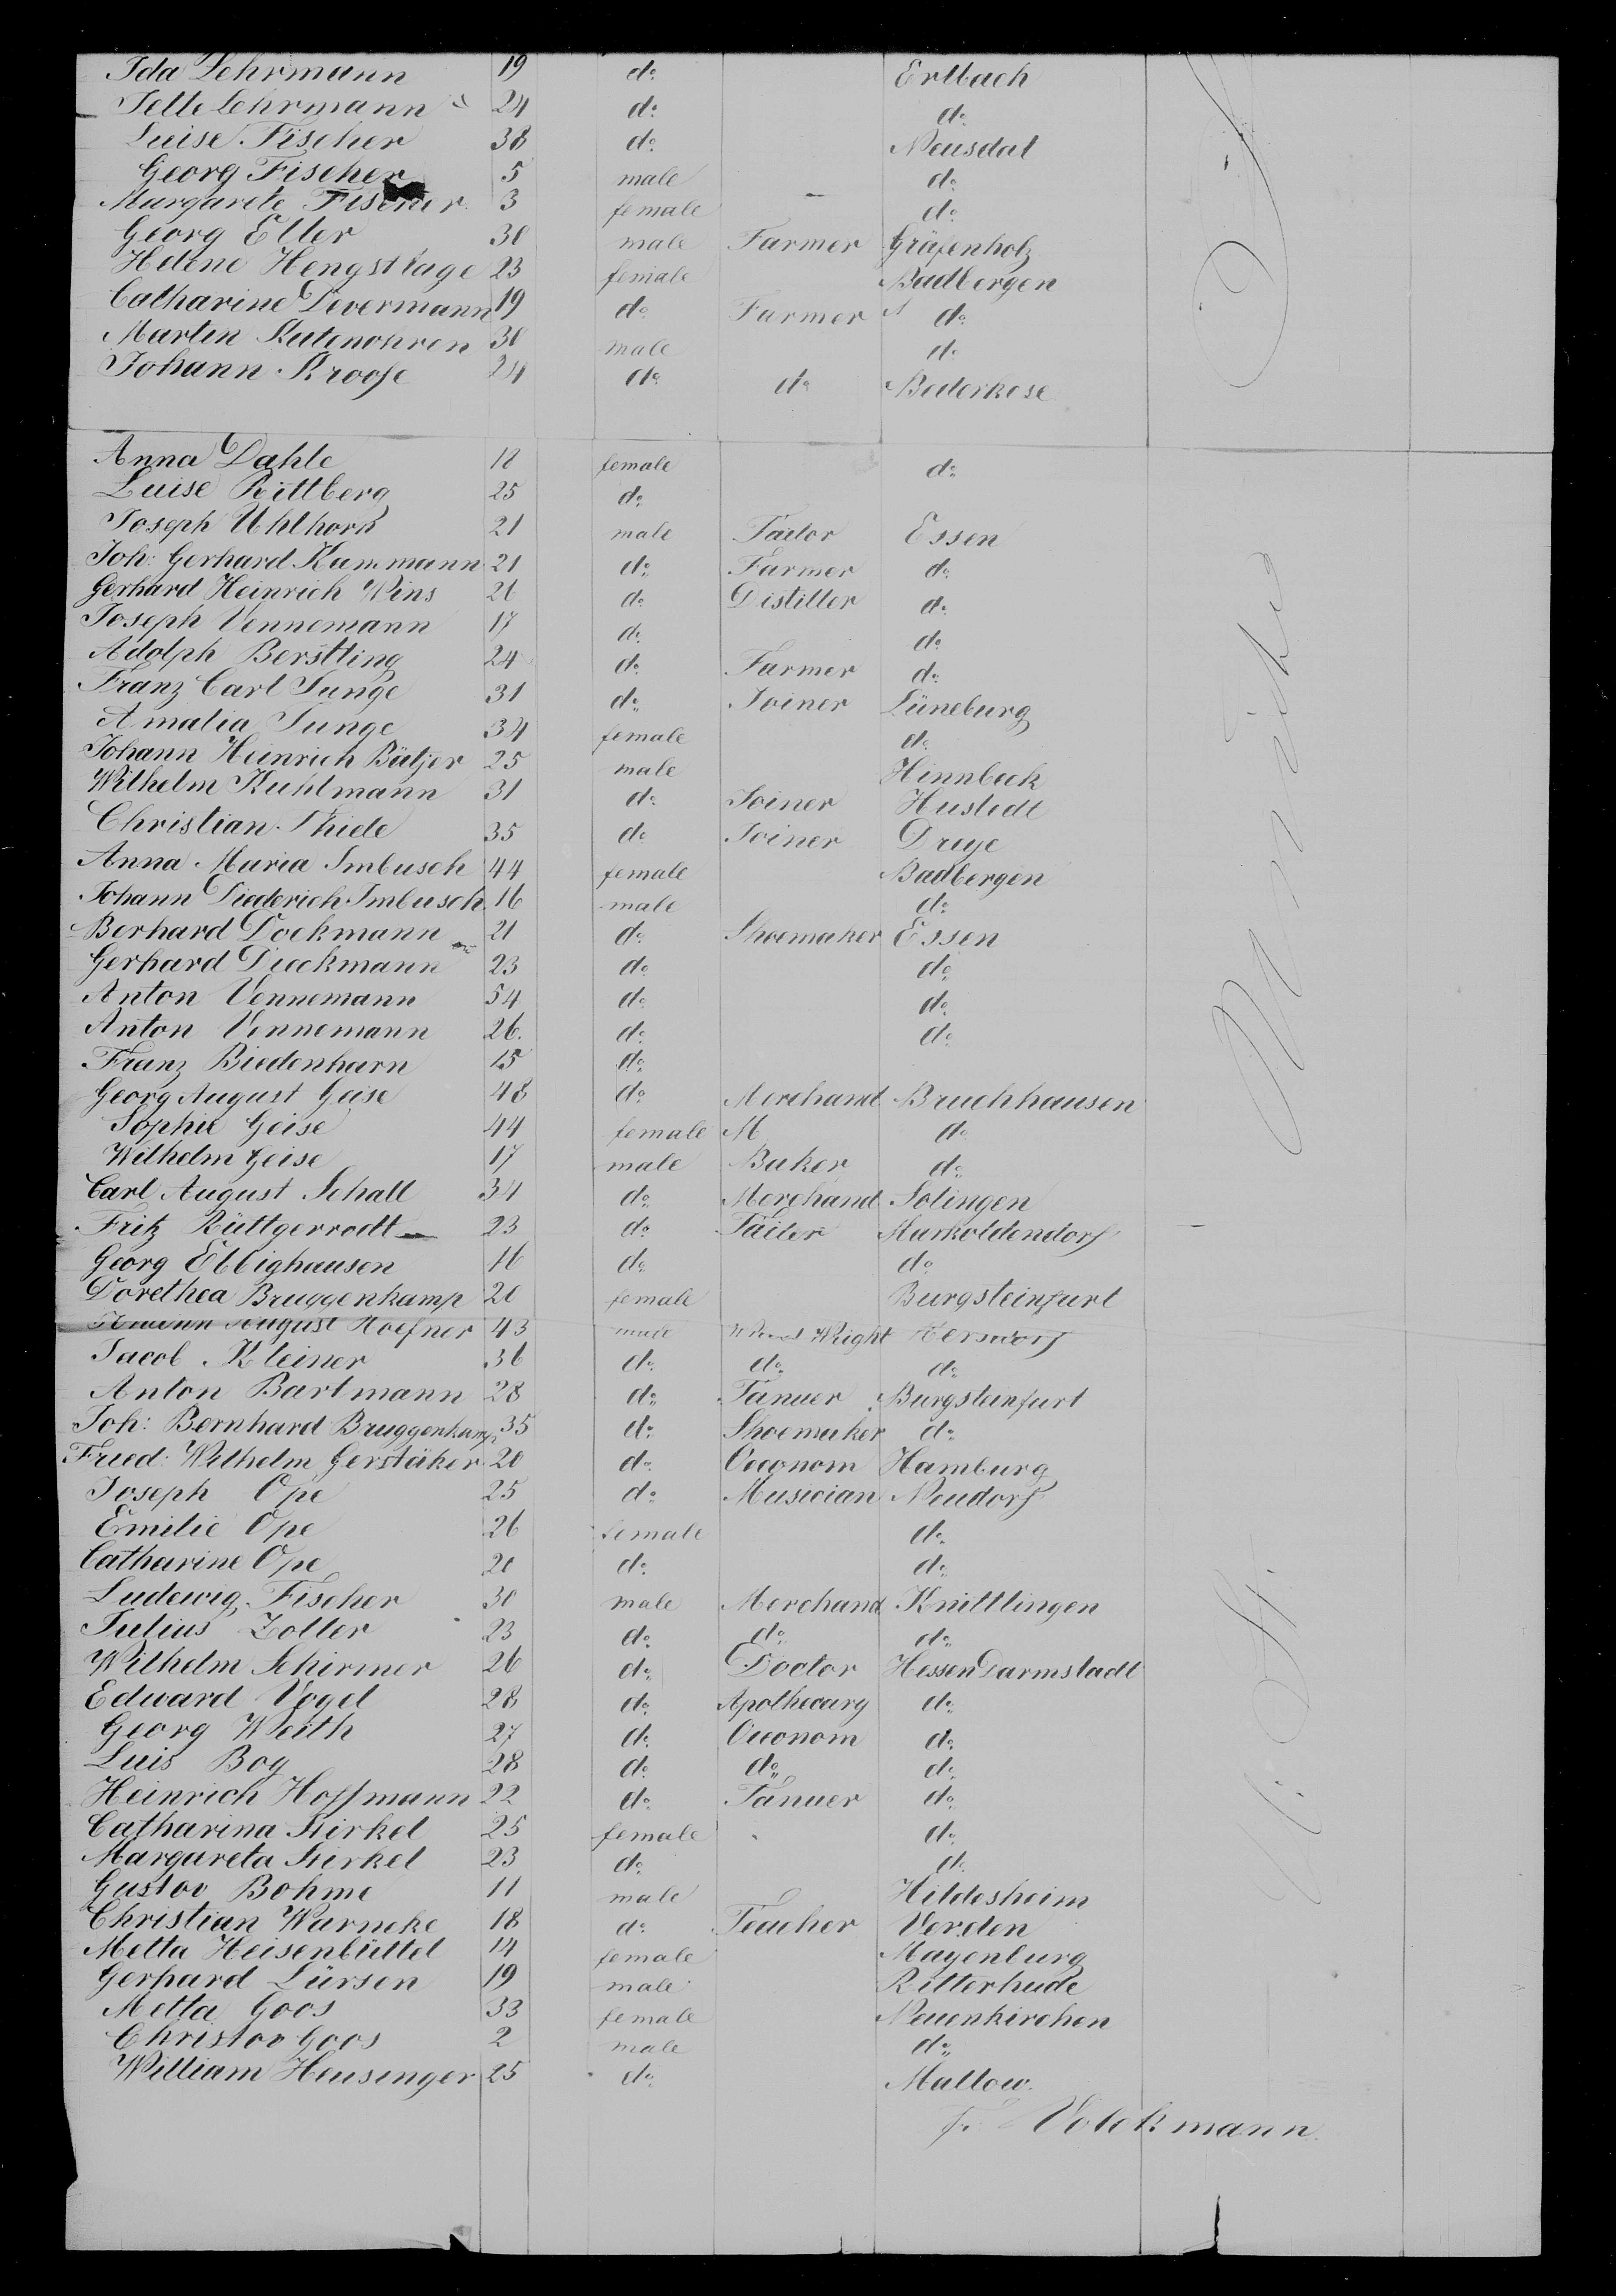 Ida Lehrmann 19 do Erlbach
Jette Lehrmann 24 do do
Luise Fischer 38 do Neusdal
Georg Fischer 5 male do
Margarete Fischer 3 female do
Georg Eller 30 male Farmer Gräfenholz
Helene Hengstlage 23 female Badbergen
Catharine Devermann 19 do Farmer do
Martin 30 male do
Johann Kroose 24 do do Bederkese
Anna Dahle 18 female do
Luise Rittberg 25 do
Joseph Uhlhorn 21 male Tailor Essen
Joh: Gerhard Kammann 21 do Farmer do
Gerhard Heinrich Wins 26 do Distiller do
Joseph Vennemann 17 do do
Adolph Berstling 24 do Farmer do
Franz Carl Junge 31 do Joiner Lüneburg
Amalia Junge 34 female do
Johann Heinrich Bätjer 25 male Hinnbeck
Wilhelm Kuhlmann 31 do Joiner Hustedt
Christian Thiele 35 do Joiner Dreye
Anna Maria Imbusch 44 female Badbergen
Johann Diederich Imbusch 16 male do
Berhard Dockmann 21 do Shoemaker Essen
Gerhard Dieckmann 23 do do
Anton Vennemann 54 do do
Anton Vennemann 26. do do
Franz Biedenharn 15 do
Georg August Geise 48 do Merchand Bruchhausen
Sophie Geise 44 female M do
Wilhelm Geise 17 male Baker do
Carl August Schall 34 do Merchand Solingen
Fritz Rüttgerrodt 23 do Tailer Markoldendorf
Georg Ellighausen 16 do do
Dorethea Bruggenkamp 20 female Burgsteinfurt
August Hoefner 43 male Wright
Jacob Kleiner 36 do do do
Anton Bartmann 28 do Tanner Burgsteinfurt
Joh: Bernhard Bruggenkamp 35 do Shoemaker do
Fried: Wilhelm Gerstäker 20 do Oeconom Hamburg
Joseph Ope 25 do Musician Neudorf
Emilie Ope 26 female do
Catharine Ope 20 do do
Ludewig Fischer 30 male Merchand Knittlingen
Julius Zoller 23 do do do
Wilhelm Schirmer 26 do Doctor Hessen Darmstadt
Edward Vogel 28 do Apothecary do
Georg Weith 27 do Oeconom do
Luis Boy 28 do do do
Heinrich Hoffmann 22 do Tanner do
Catharina Stirkel 25 female do
Margareta Stirkel 23 do do
Gustov Bohme 11 male Hildesheim
Christian Warneke 18 do Teacher Verden
Metta Heisenbüttel 14 female Mayenburg
Gerhard Lürsen 19 male Ritterhude
Metta Goos 33 female Neuenkirchen
Christov Goos 2 male do
William Heusinger 25 do Mallow.
F. Volckmann.